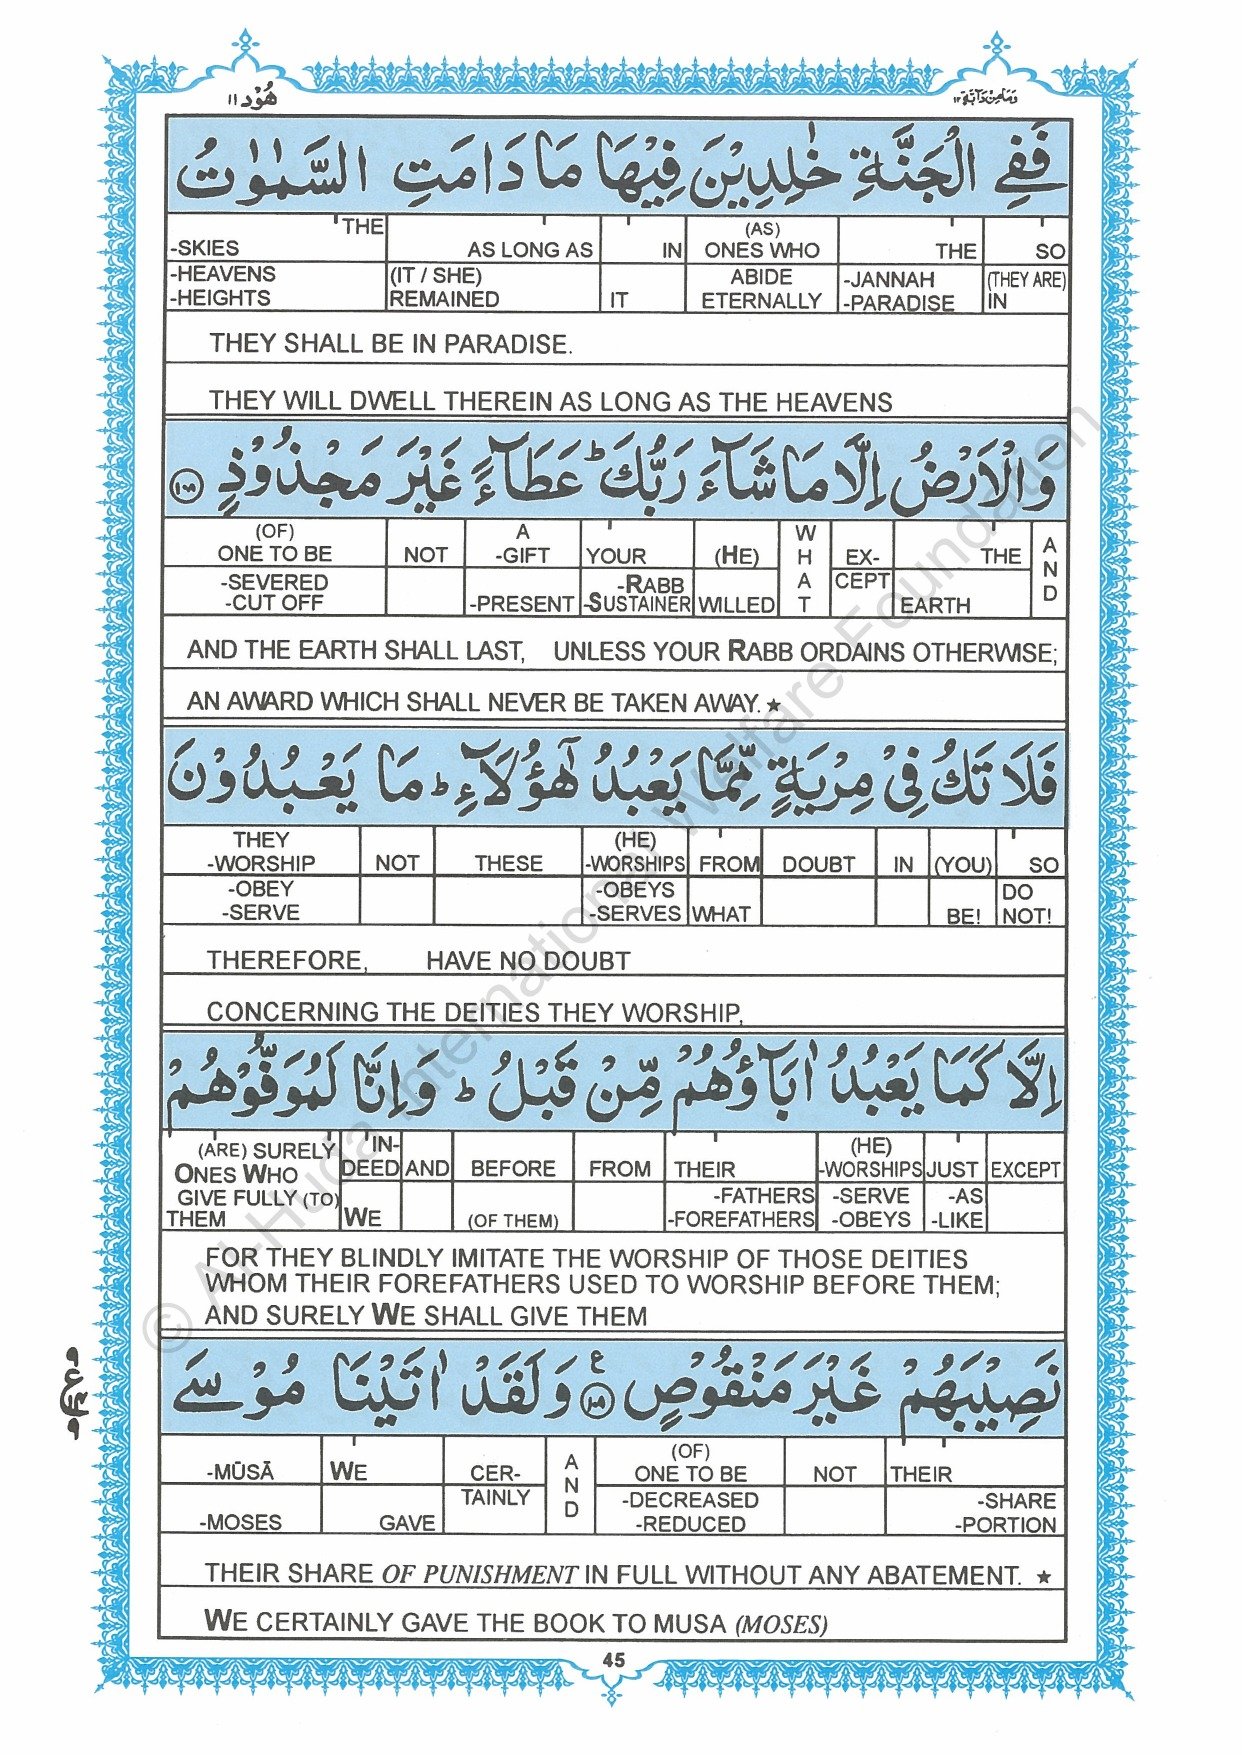 هُوْد ١١
وَمَا مِنْ دَآبَّةٍ ١٢
فَفِي الْجَنَّةِ خٰلِدِيْنَ فِيْهَا مَا دَامَتِ السَّمٰوٰتُ
THE AS LONG AS IN (AS) ONES WHO THE SO
-SKIES
-HEAVENS (IT / SHE) ABIDE -JANNAH (THEY ARE)
-HEIGHTS REMAINED IT ETERNALLY -PARADISE IN
THEY SHALL BE IN PARADISE.
THEY WILL DWELL THEREIN AS LONG AS THE HEAVENS
وَالْاَرْضُ اِلَّا مَا شَآءَ رَبُّكَ ؕ عَطَآءً غَيْرَ مَجْذُوْذٍ ١٠٨
(OF) ONE TO BE NOT A -GIFT YOUR (HE) WHAT EX- THE AND
-SEVERED -CUT OFF -PRESENT -RABB -SUSTAINER WILLED CEPT EARTH
AND THE EARTH SHALL LAST, UNLESS YOUR RABB ORDAINS OTHERWISE;
AN AWARD WHICH SHALL NEVER BE TAKEN AWAY. ★
فَلَا تَكُ فِيْ مِرْيَةٍ مِّمَّا يَعْبُدُ هٰٓؤُلَآءِ ؕ مَا يَعْبُدُوْنَ
THEY -WORSHIP NOT THESE (HE) -WORSHIPS FROM DOUBT IN (YOU) SO
-OBEY -SERVE -OBEYS -SERVES WHAT BE! DO NOT!
THEREFORE, HAVE NO DOUBT
CONCERNING THE DEITIES THEY WORSHIP,
اِلَّا كَمَا يَعْبُدُ اٰبَآؤُهُمْ مِّنْ قَبْلُ ؕ وَاِنَّا لَمُوَفُّوْهُمْ
(ARE) SURELY ONES WHO IN-DEED AND BEFORE FROM THEIR (HE) -WORSHIPS JUST EXCEPT
GIVE FULLY (TO) THEM WE (OF THEM) -FATHERS -FOREFATHERS -SERVE -OBEYS -AS -LIKE
FOR THEY BLINDLY IMITATE THE WORSHIP OF THOSE DEITIES
WHOM THEIR FOREFATHERS USED TO WORSHIP BEFORE THEM;
AND SURELY WE SHALL GIVE THEM
نَصِيْبَهُمْ غَيْرَ مَنْقُوْصٍ ١٠٩ ع وَلَقَدْ اٰتَيْنَا مُوْسَى
-MŪSĀ WE CER- AND (OF) ONE TO BE NOT THEIR
-MOSES GAVE TAINLY -DECREASED -REDUCED -SHARE -PORTION
THEIR SHARE OF PUNISHMENT IN FULL WITHOUT ANY ABATEMENT. ★
WE CERTAINLY GAVE THE BOOK TO MUSA (MOSES)
45
© Al-Huda International Welfare Foundation